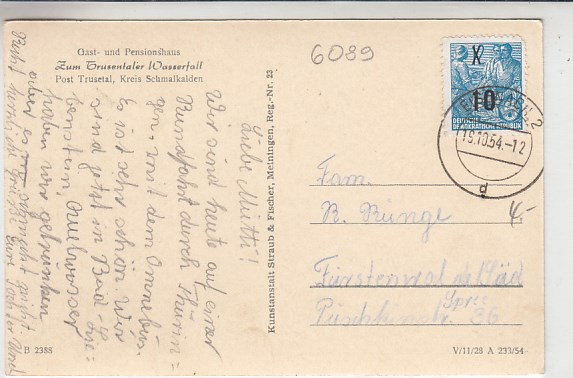 Gast- und Pensionshaus
Zum Trusentaler Wasserfall
Post Trusetal, Kreis Schmalkalden
6089
X
10
DEUTSCHE
DEMOKRATISCHE REPUBLIK
15.10.54.-12
d
Liebe Mutti!
Wir sind heute auf einer
Rundfahrt durch Thürin=
gen mit dem Omnibus.
Es ist sehr schön. Wir
sind jetzt in Bad-Lie=
benstein. Quellwasser
haben wir getrunken
aber
Kunstanstalt Straub & Fischer, Meiningen, Reg.-Nr. 23
Fam.
R. Runge
4,-
Fürstenwalde
Spree
Puschkinstr. 36
B 2388
V/11/28 A 233/54